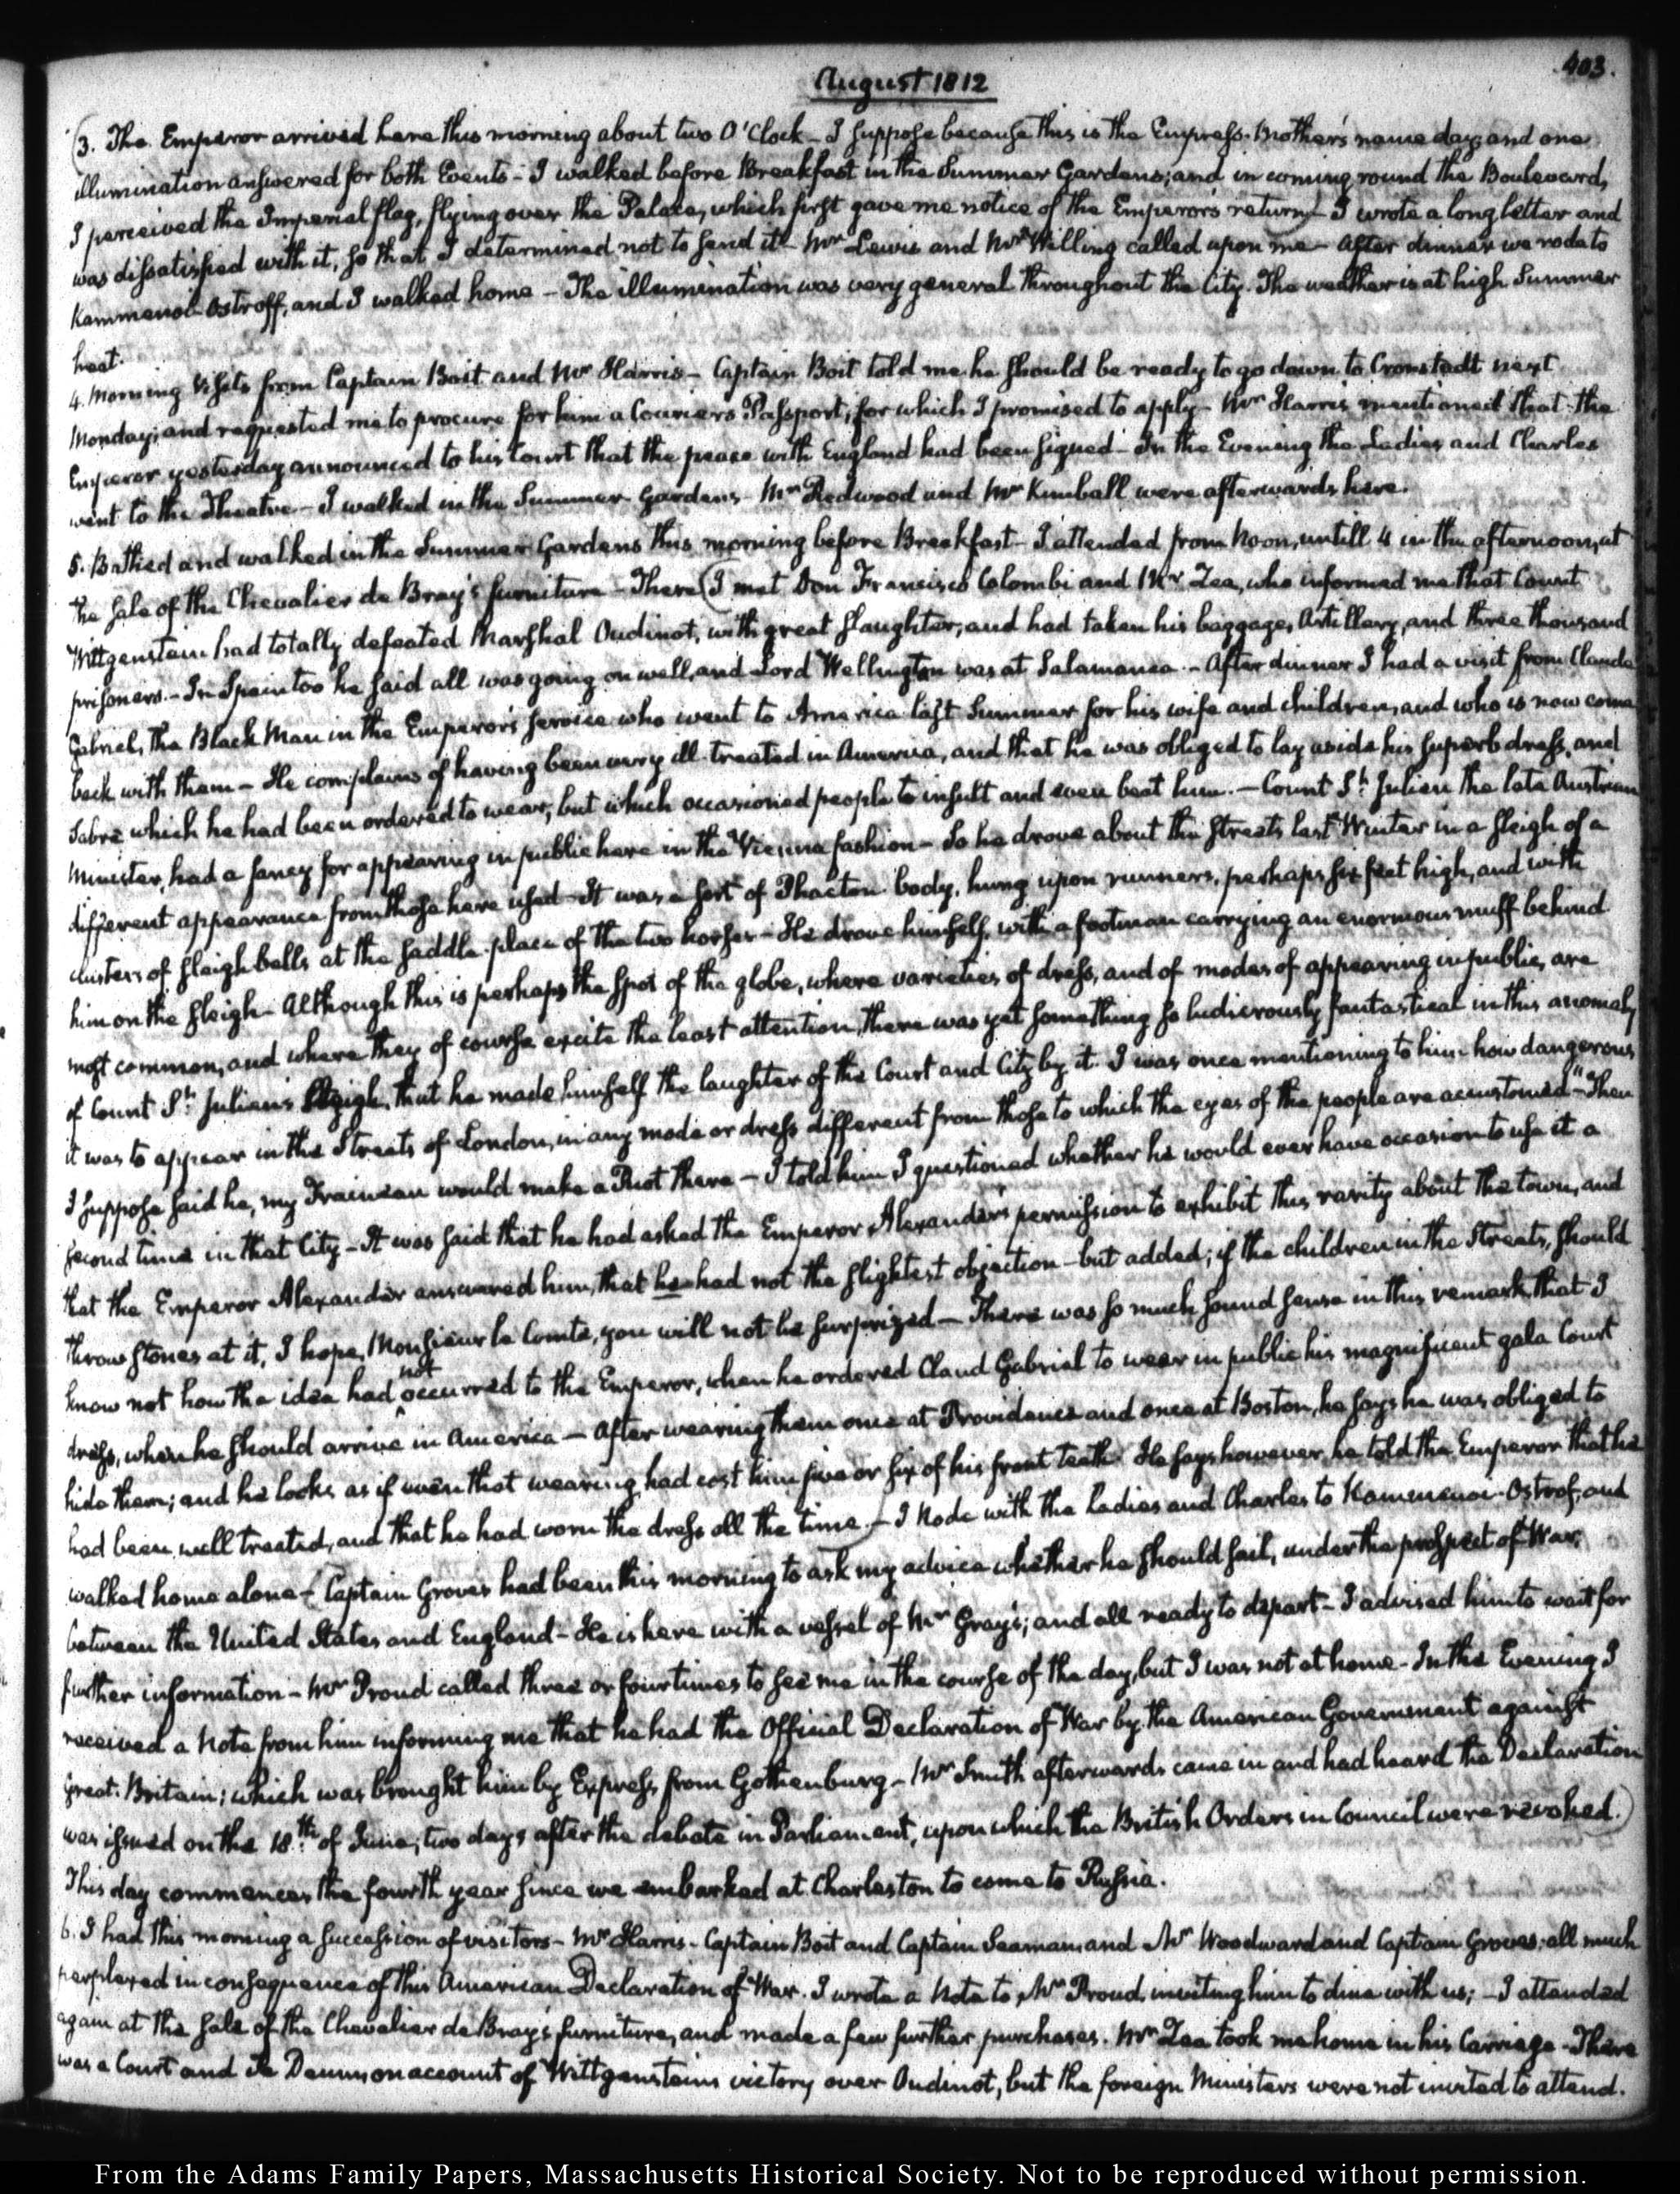 403.
August 1812
(3. The Emperor arrived here this morning about two O'Clock – I suppose because this is the Empress-Mother's name day; and one
illumination answered for both Events – I walked before Breakfast in the Summer Gardens; and in coming round the Boulevard,
I perceived the Imperial flag, flying over the Palace, which first gave me notice of the Emperor's return) – I wrote a long letter and
was dissatisfied with it, so that I determined not to send it – Mr Lewis and Mr Willing called upon me – After dinner we rode to
Kammenoi-Ostroff, and I walked home – The illumination was very general throughout the City. The weather is at high Summer
heat.
4. Morning Visits from Captain Boit and Mr Harris – Captain Boit told me he should be ready to go down to Cronstadt next
Monday; and requested me to procure for him a Courier's Passport; for which I promised to apply – Mr Harris mentioned that the
Emperor yesterday announced to his Court that the peace with England had been signed – In the Evening the Ladies and Charles
went to the Theatre – I walked in the Summer Gardens – Mr Redwood and Mr Kimball were afterwards here.
5. Bathed and walked in the Summer Gardens this morning before Breakfast – I attended from Noon, untill 4 in the afternoon, at
the sale of the Chevalier de Bray's furniture – There (I met Don Francisco Colombi and Mr Zea, who informed me that Count
Wittgenstein had totally defeated Marshal Oudinot, with great slaughter, and had taken his baggage, Artillery, and three thousand
prisoners. – In Spain too he said all was going on well, and Lord Wellington was at Salamanca. – After dinner I had a visit from Claude
Gabriel, the Black Man in the Emperor's service who went to America last Summer for his wife and children, and who is now come
back with them – He complains of having been very ill treated in America, and that he was obliged to lay aside his superb dress, and
Sabre which he had been ordered to wear, but which occasioned people to insult and even beat him. – Count St. Julien the late Austrian
Minister, had a fancy for appearing in public here in the Vienna fashion – So he drove about the streets last Winter in a sleigh of a
different appearance from those here used – It was a sort of Phaeton body, hung upon runners, perhaps six feet high, and with
clusters of sleigh bells at the saddle-place of the two horses – He drove himself, with a footman carrying an enormous muff behind
him on the sleigh – Although this is perhaps the spot of the globe, where varieties of dress, and of modes of appearing in public, are
most common, and where they of course excite the least attention, there was yet something so ludicrously fantastical in this anomaly
of Count St. Julien's Sleigh, that he made himself the laughter of the Court and City by it. I was once mentioning to him how dangerous
it was to appear in the Streets of London, in any mode or dress different from those to which the eyes of the people are accustomed – "Then
I suppose said he, my Traineau would make a Riot there – I told him I questioned whether he would ever have occasion to use it a
second time in that City – It was said that he had asked the Emperor Alexander's permission to exhibit this rarity about the town, and
that the Emperor Alexander answered him, that he had not the slightest objection – but added; if the children in the Streets, should
throw stones at it, I hope, Monsieur le Comte, you will not be surprized – There was so much sound sense in this remark that I
know not how the idea had not occurred to the Emperor, when he ordered Claud Gabriel to wear in public his magnificent gala Court
dress, when he should arrive in America – After wearing them once at Providence and once at Boston, he says he was obliged to
hide them; and he looks as if even that wearing had cost him five or six of his front teeth. He says however he told the Emperor that he
had been well treated, and that he had worn the dress all the time.) – I Rode with the Ladies and Charles to Kammenoi-Ostrof, and
walked home alone – (Captain Groves had been this morning to ask my advice whether he should sail, under the prospect of War,
between the United States and England – He is here with a vessel of Mr Gray's; and all ready to depart – I advised him to wait for
further information – Mr Proud called three or four times to see me in the course of the day, but I was not at home – In the Evening I
received a Note from him informing me that he had the Official Declaration of War by the American Government against
Great-Britain; which was brought him by Express from Gothenburg – Mr Smith afterwards came in and had heard the Declaration
was issued on the 18th. of June, two days after the debate in Parliament, upon which the British Orders in Council were revoked.)
This day commences the fourth year since we embarked at Charleston to come to Russia.
6. I had this morning a succession of visitors – Mr Harris – Captain Boit and Captain Seaman, and Mr Woodward and Captain Groves; all much
perplexed in consequence of this American Declaration of War. I wrote a Note to Mr Proud, inviting him to dine with us; – I attended
again at the sale of the Chevalier de Bray's furniture, and made a few further purchases. Mr Zea took me home in his Carriage – There
was a Court and Te Deum, on account of Wittgenstein's victory over Oudinot, but the foreign Ministers were not invited to attend.
From the Adams Family Papers, Massachusetts Historical Society. Not to be reproduced without permission.